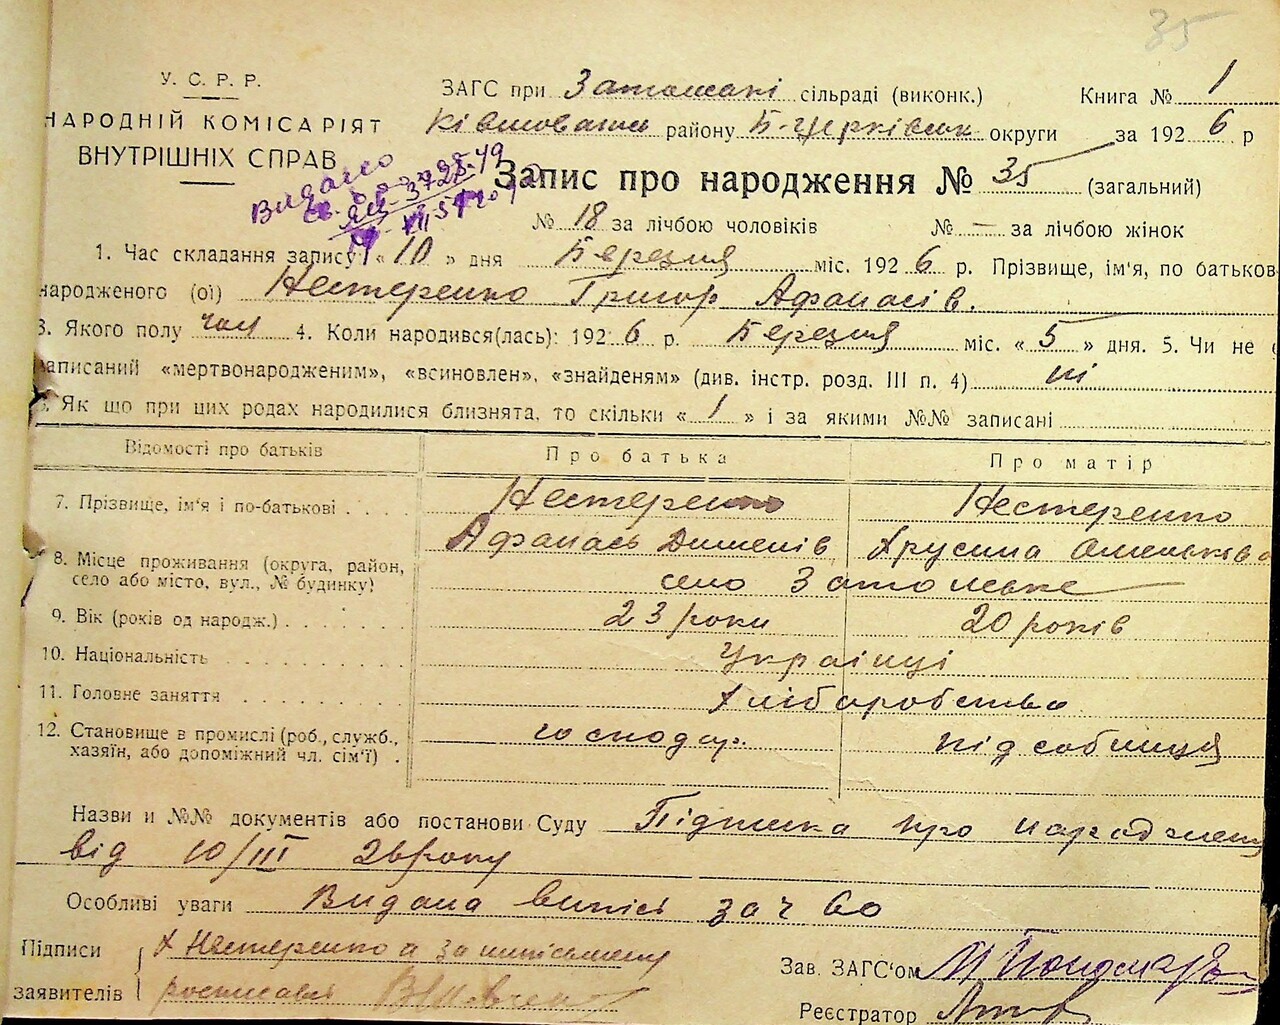 35
У. С. Р. Р.
НАРОДНІЙ КОМІСАРІЯТ
ВНУТРІШНІХ СПРАВ
ЗАГС при Затонські сільраді (виконк.) Книга № 1
району Б-Церківськ округи за 1926 р
Видано
Запис про народження № 35 (загальний)
№ 18 за лічбою чоловіків № — за лічбою жінок
1. Час складання запису „ 10 " дня Березня міс. 1926 р. Прізвище, ім'я, по батьков
народженого (ої) Нестеренко Григор Афанасів.
3. Якого полу чол 4. Коли народився(лась): 1926 р. Березня міс. « 5 » дня. 5. Чи не
записаний «мертвонародженим», «всиновлен», «знайденям» (див. інстр. розд. III п. 4) ні
Як що при цих родах народилися близнята, то скільки « 1 » і за якими №№ записані
Відомості про батьків Про батька Про матір
7. Прізвище, ім'я і по-батькові Нестеренко Нестеренко
Афанась
8. Місце проживання (округа, район,
село або місто, вул., № будинку) село Затонське
9. Вік (років од народж.) 23 роки 20 років
10. Національність Українці
11. Головне заняття хліборобство
12. Становище в промислі (роб., служб., хазяїн, або допоміжний чл. сім'ї) господар. підсобниця
Назви и №№ документів або постанови Суду Підписка про народжену
від 10/III 26 року
Особливі уваги Видана випись за ч 60
Підписи
заявителів
х Нестеренко а за неписьмену
росписався
Зав. ЗАГС'ом
Реєстратор